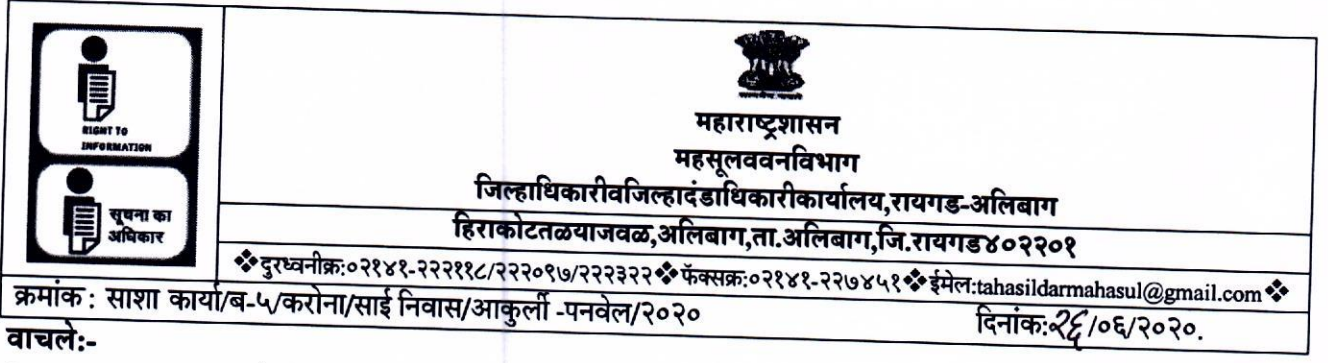 RIGHT TO
INFORMATION
सूचना का
अधिकार
महाराष्ट्रशासन
महसूलववनविभाग
जिल्हाधिकारीवजिल्हादंडाधिकारीकार्यालय,रायगड-अलिबाग
हिराकोटतळयाजवळ,अलिबाग,ता.अलिबाग,जि.रायगड४०२२०१
❖दुरध्वनीक्र:०२१४१-२२२११८/२२२०९७/२२२३२२❖फॅक्सक्र:०२१४१-२२७४५१❖ईमेल:tahasildarmahasul@gmail.com❖
क्रमांक : साशा कार्या/ब-५/करोना/साई निवास/आकुर्ली -पनवेल/२०२०
दिनांक:२६/०६/२०२०.
वाचले:-